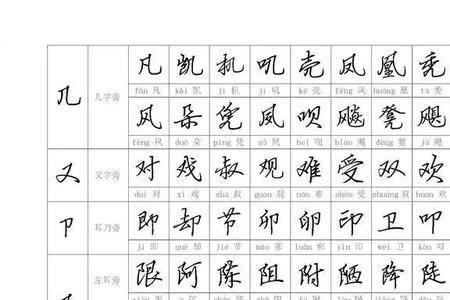 凡 凯 机 叽 壳 凤 凰 秃
几 几字旁 fán 凡 kǎi 凯 jī 机 jī 叽 ké 壳 fèng 凤 huáng 凰
风 朵 凭 夙 呗 飚 凳 飓
fēng 风 duǒ 朵 píng 凭 sù 夙 bei 呗 biāo dèng 凳 jù 飓
又 又字旁 对 戏 叔 观 难 受 双 欢
duì 对 xì 戏 shū 叔 guān 观 nán 难 shòu 受 shuāng 双 huān 欢
卩 耳刀旁 即 却 节 卯 卵 印 卫 叩
jí 即 què 却 jié 节 mǎo 卯 luǎn 卵 yìn 印 wèi 卫 kòu 叩
左耳旁 限 阿 隊 阻 附 陋 降 陡